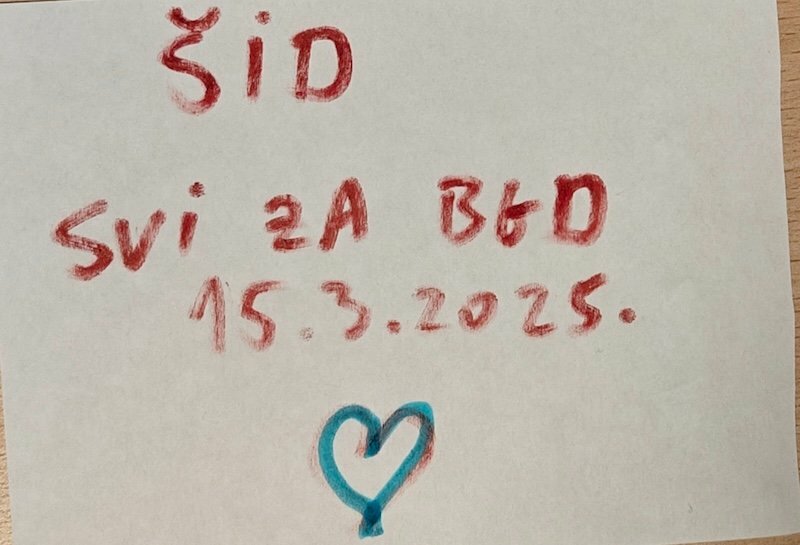 ŠiD
Svi ZA BGD
15.3.2025.